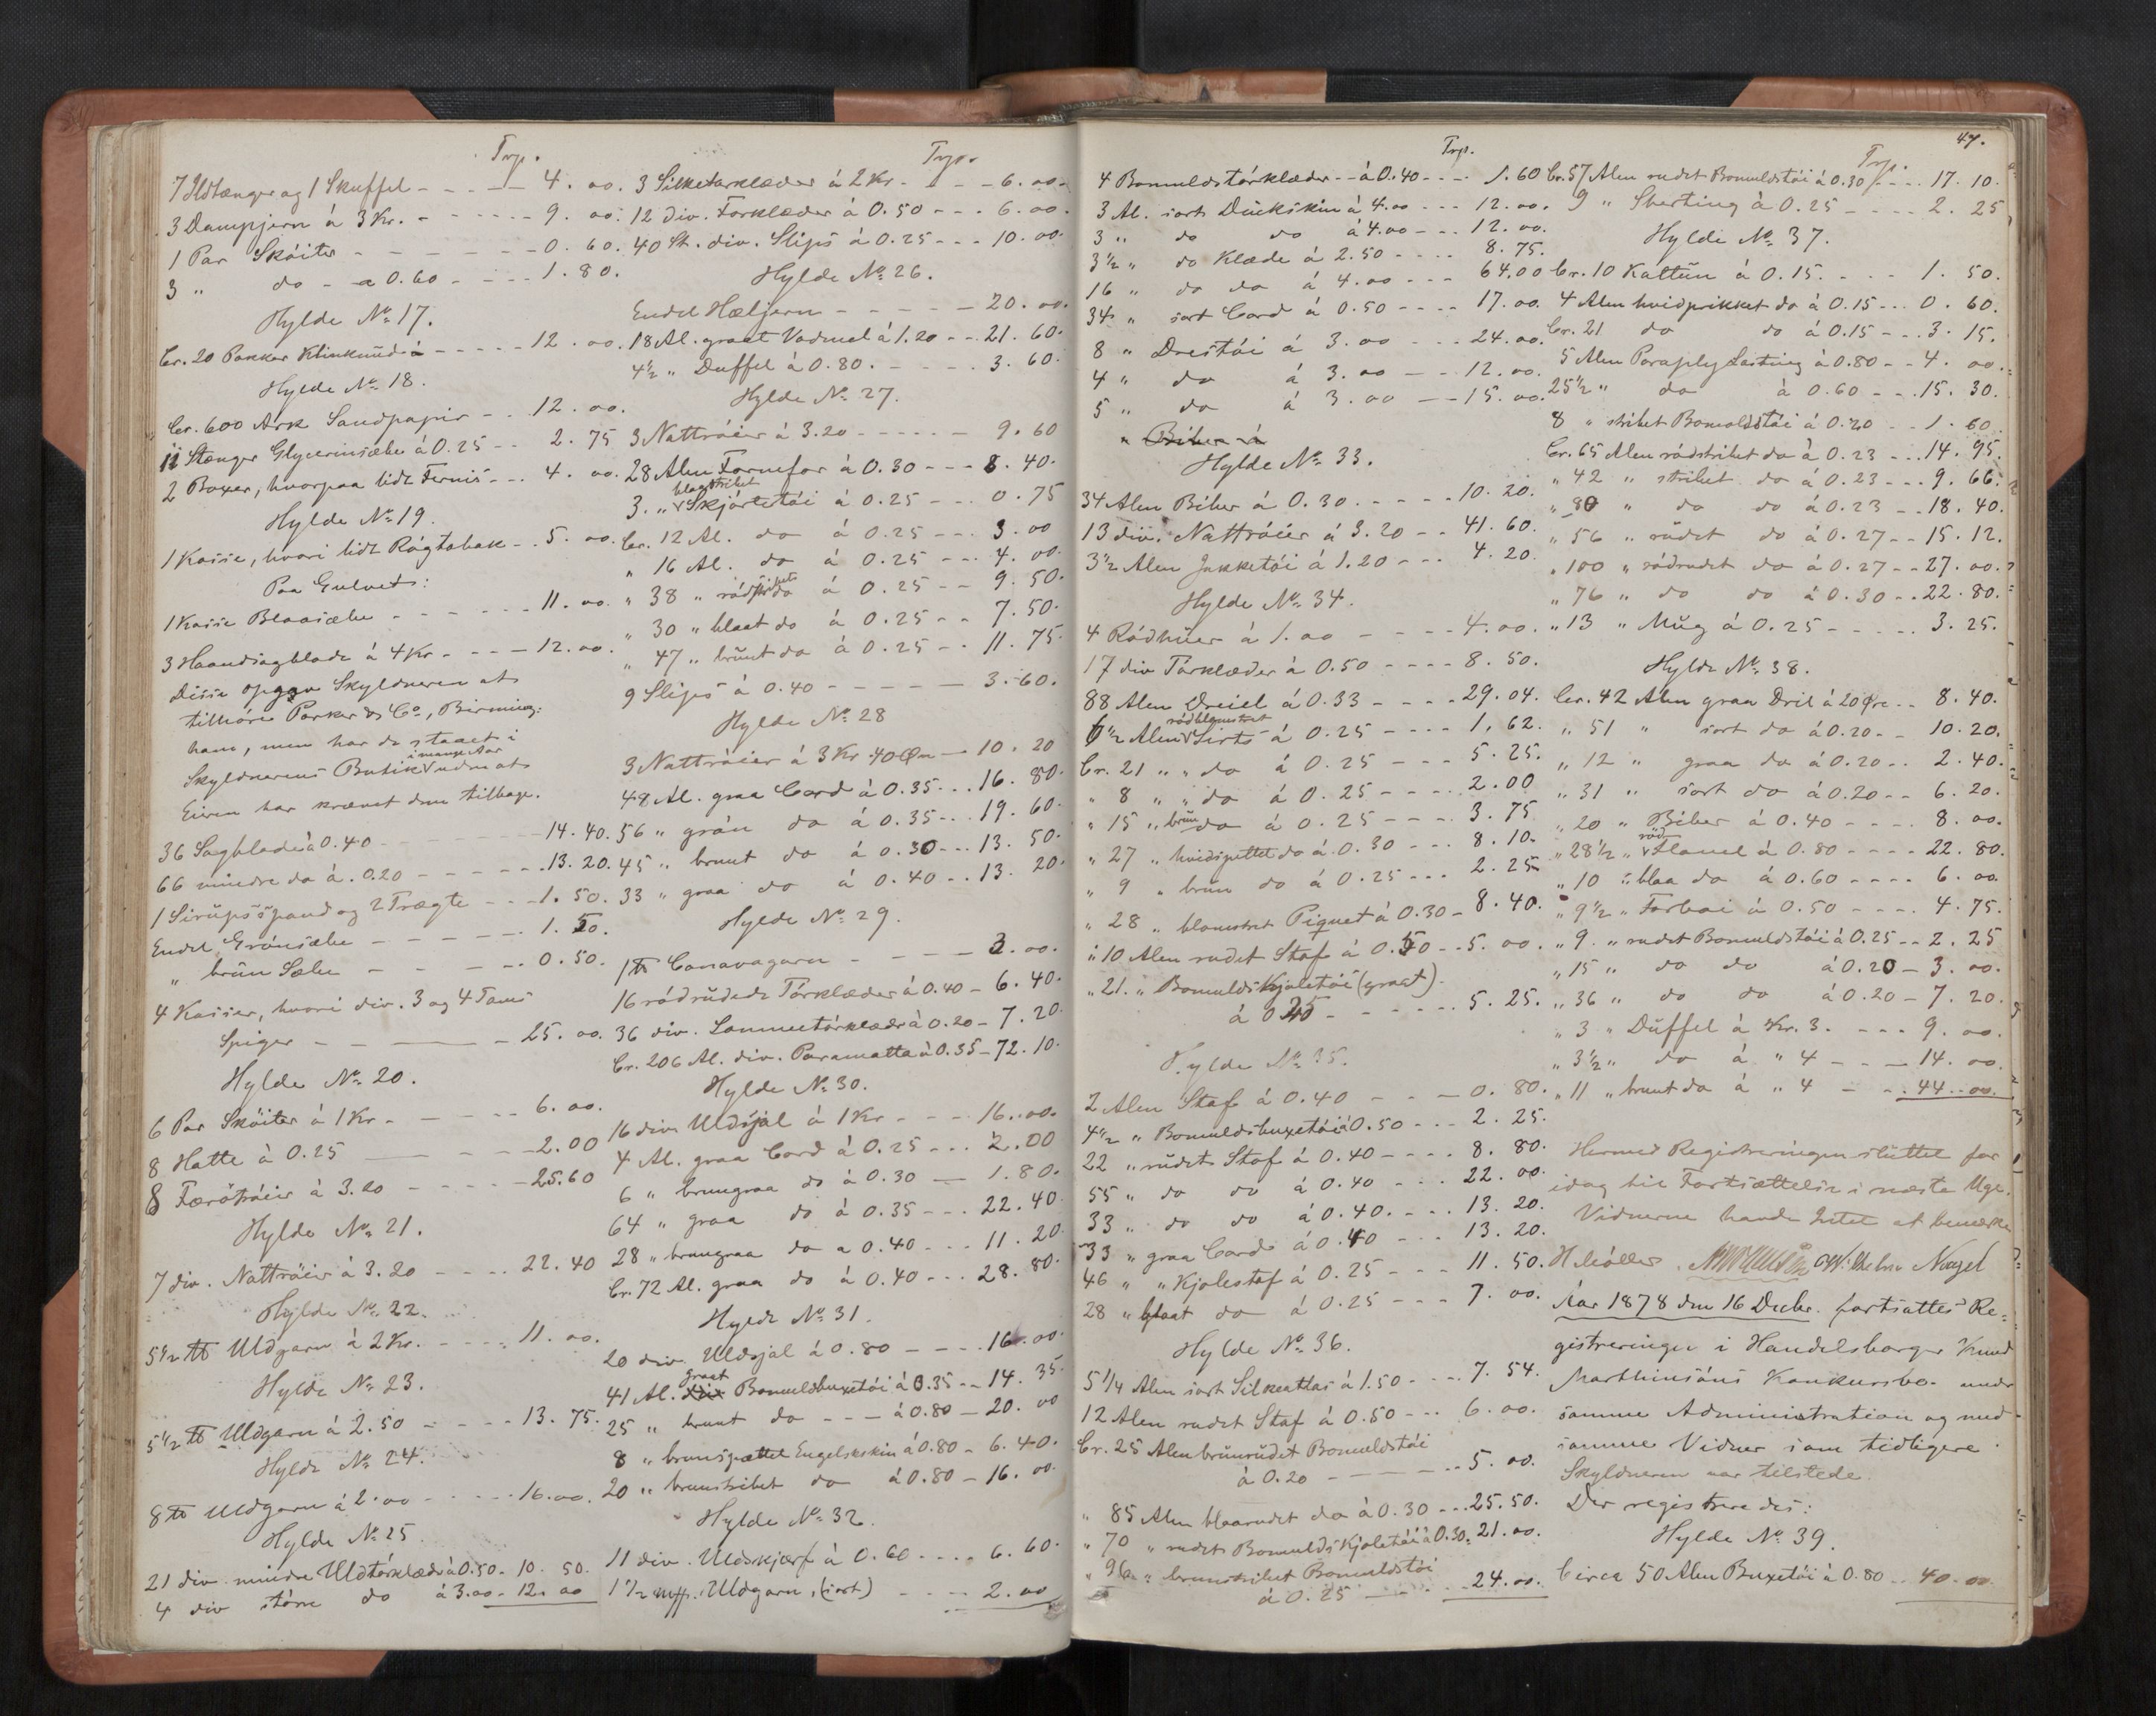 Trp.
7 Ildtænger og 1 Skuffel - - - - 4. 00.
3 Dampjern á 3 Kr. - - - - - 9. 00.
1 Par Sköiter - - - - - 0. 60.
3 " do - a 0.60 - - - - 1. 80.
Hylde No. 17.
Cr. 20 Pakker Klinknud á - - - - - 12. 00.
Hylde No. 18.
Cr. 600 Ark Sandpapir - - 12. 00.
11 Stænger Glycerinsæbe á 0.25 - - 2. 75
2 Boxer, hvorpaa lidt Fernis - - - 4. 00.
Hylde No. 19.
1 Kasse, hvori lidt Rögtobak - - 5. 00.
Paa Gulvet:
1 Kasse Blaasæbe - - - - - 11. 00.
3 Haandsagblade á 4 Kr - - - - 12. 00.
Disse opgav Skyldneren at
tilhöre Parker & Co, Birming:
ham, men har de staaet i
Skyldnerens Butik i mange Aar uden at
Eieren har krævet dem tilbage.
36 Sagblade á 0.40 - - - - 14. 40.
66 mindre do á. 0.20 - - - - - 13. 20.
1 Sirüpsspand og 2 Tragte - - - 1. 50.
Endel Grönsæbe - - - - - 1. 50.
" brün Sæbe - - - - - 0. 50.
4 Kasser, hvori div. 3 og 4 Toms
Spiger - - - - 25. 00.
Hylde No. 20.
6 Par Sköiter á 1 Kr - - - - - 6. 00.
8 Hatte á 0.25 - - - 2.00
8 Færötröier á 3.20 - - - - - 25.60
Hylde No. 21.
7 div. Nattröier á 3.20 - - - - 22. 40
Hylde No. 22.
5 1/2 ℔ Uldgarn á 2 Kr. - - - - 11. 00.
Hylde No. 23.
5 1/2 ℔ Uldgarn á 2.50 - - - - 13. 75.
Hylde No. 24.
8 ℔ Uldgarn á 2.00 - - - - - 16. 00.
Hylde No. 25.
21 div. mindre Uldtörklæder á 0.50 - 10. 50.
4 div större do á 3.00 - 12. 00
Trp.
3 Silketørklæder á 2 Kr - - - - 6. 00.
12 div. Forklæder á 0.50 - - - 6. 00.
40 St. div. Slips á 0.25 - - - 10. 00
Hylde No. 26.
Endel Hæljern - - - - - 20. 00.
18 Al. graat Vadmel á 1.20 - - 21. 60.
4 1/2 " Duffel á 0.80. - - - - 3. 60.
Hylde No. 27.
3 Nattröier á 3.20 - - - - - 9. 60
28 Alen Fornefor á 0.30 - - - 8. 40.
3. " blaastribet Skjörtetöi á 0.25 - - - 0. 75
Cr. 12 Al. do á 0.25 - - - 3. 00
" 16 Al. do á 0.25 - - - 4. 00.
" 38 " rödstribet do á 0.25 - - 9. 50.
" 30 " blaat do á 0.25 - - 7. 50.
" 47 " brünt do á 0.25 - - 11. 75.
9 Slips á 0.40 - - - - - 3. 60.
Hylde No. 28
3 Nattröier á 3 Kr 40 Öre - 10. 20
48 Al. graa Cord á 0.35 - - - 16. 80.
56 " grön do á 0.35 - - - 19. 60.
45 " brunt do á 0.30 - - - 13. 50.
33 " graa do á 0.40 - - 13. 20.
Hylde No. 29.
1 ℔ Canavagarn - - - - 2. 00.
16 rödrüdede Törklæder á 0.40 - 6. 40.
36 div. Lommetörklæder á 0.20 - 7. 20
Cr. 206 Al. div. Paramatta á 0.35 - 72. 10.
Hylde No. 30.
16 div. Uldsjal á 1 Kr - - - 16. 00.
4 Al. graa Cord á 0.25 - - - 2. 00
6 " brungraa do á 0.30 - 1. 80.
64 " graa do á 0.35 - - - 22. 40
28 " brungraa do a 0.40 - - - 11. 20
Cr. 72 Al. graa do á 0.40 - - - 28. 80.
Hylde No. 31.
20 div. Uldsjal á 0.80 - - - - 16. 00.
41 Al. graat Bomuldsbuxetöi á 0.35 - - 14. 35.
25 " brunt do - - - á 0.80 - 20. 00
8 " brunspættet Engelskskin á 0.80 - 6. 40.
20 " brunstribet do á 0.80 - 16. 00
Hylde No. 32.
11 div. Uldskjærf á 0.60 - - - - 6. 60.
1 1/2 Uldgarn, (sort) - - - - 2. 00
Trp.
4 Bomuldstörklæder - - á 0.40 - - - 1. 60
3 Al. sort Duckskin á 4.00 - - - 12. 00.
3 " do do á 4.00 - - - 12. 00.
3 1/2 " do Klæde á 2.50 - - - - 8. 75.
16 " do do á 4.00 - - - 64.00
34 " sort Cord á 0.50 - - - - 17. 00.
8 " Drestöi á 3.00 - - - 24. 00.
4 " do á 3.00 - - - 12. 00.
5 " do á 3.00 - - - 15. 00.
" Biber á
Hylde No. 33.
34 Alen Biber á 0.30. - - - - 10. 20.
13 div. Nattröier á 3.20 - - 41. 60.
3 1/2 Alen Jakketöi á 1.20 - - - 4. 20.
Hylde No. 34.
4 Rödhüer á 1.00 - - - - 4. 00.
17 div Törklæder á 0.50 - - - - 8. 50.
88 Alen Dreiel á 0.33 - - - - 29. 04.
6 1/2 Alen rödblomstret Sirts á 0.25 - - - - 1. 62.
Cr. 21 " " do á 0.25 - - - 5. 25.
" 8 " " do á 0.25 - - - - 2. 00
" 15 " brün do á 0.25 - - - - 3. 75
" 27 " hvidspettet do á 0.30 - - - 8. 10.
" 9 " brün do á 0.25 - - - 2. 25
" 28 " blomstret Piquet á 0.30 - 8. 40.
" 10 Alen rudet Stof á 0.50 - - 5. 00.
" 21. " Bomulds Kjoletöi (graat)
á 0.25 - - - - - - 5. 25.
Hylde No. 35.
2 Alen Stof á 0.40 - - - 0. 80.
4 1/2 " Bomuldsbuxetöi á 0.50 - - - 2. 25.
22 " rüdet Stof á 0.40 - - - - 8. 80.
55 " do do á 0.40 - - - 22. 00.
33 " do do á 0.40. - - - 13. 20.
33 " graa Cord á 0.40 - - - 13. 20.
46 " " Kjolestof á 0.25 - - - 11. 50.
28 " blaat do á 0.25 - - - 7. 00.
Hylde No. 36.
5 1/4 Alen sort Silkeatlas á 1.50 - - - - 7. 54.
12 Alen rudet Stof á 0.50 - - - 6. 00.
Cr. 25 Alen brünrüdet Bomuldstöi
á 0.20 - - - - - 5. 00.
" 85 Alen blaarudet do á 0.30 - - - 25. 50.
" 70 " rudet Bomulds Kjoletöi á 0.30 - 21. 00.
" 96 " brunstribet Bomuldstöi
á 0.25 - - - - 24. 00.
47.
Trp.
Cr. 57 Alen rudet Bomuldstöi á 0.30 - - - - 17. 10.
9 " Sherting á 0.25 - - - - 2. 25
Hylde No. 37.
Cr. 10 Kattün á 0.15. - - - 1. 50.
4 Alen hvidprikket do á 0.15 - - - 0. 60.
Cr. 21 do do á 0.15 - - - 3. 15.
5 Alen Paraply Lasting á 0.80 - - 4. 00.
25 1/2 " do á 0.60 - - - 15. 30.
8 " stribet Bomuldstöi á 0.20 - - 1. 60.
Cr. 65 Alen rödstribet do á 0.23 - - - 14. 95.
" 42 " stribet do á 0.23 - - - 9. 66.
" 80 " do do á 0.23 - - 18. 40.
" 56 " rüdet do á 0.27 - - 15. 12.
" 100 " rödrudet do á 0.27 - - 27. 00.
" 76 " do do á 0.30 - - 22. 80.
" 13 " Müg á 0.25 - - - - - 3. 25.
Hylde No. 38.
Cr. 42 Alen graa Dril á 20 Öre - - 8. 40.
" 51 " sort do á 0.20 - - 10. 20.
" 12 " graa do á 0.20 - - 2. 40.
" 31 " sort do á 0.20 - - 6. 20.
" 20 " Biber á 0.40 - - - - 8. 00.
" 28 1/2 " röd Flanel á 0.80 - - - - 22. 80.
" 10 " blaa do á 0.60 - - - - 6. 00.
" 9 1/2 " Forboi á 0.50 - - - - 4. 75.
" 9. " rudet Bomuldstöi á 0.25 - - 2. 25
" 15 " do do á 0.20 - 3. 00.
" 36 " do do á 0.20 - 7. 20.
" 3 " Düffel á Kr. 3. - - - 9. 00.
" 3 1/2 " do á " 4 - - - 14. 00.
" 11 " brunt do á " 4 - - 44. 00.
Hermed Registreringen sluttet for
idag til Fortsættelse i næste Uge.
Vidnerne havde Intet at bemærke
H Möller. Nagel
Aar 1878 den 16 Decbr. fortsattes Re:
gistreringen i Handelsborger Knud
Marthinsöns Konkursbo under
samme Administration og med
samme Vidner som tidligere.
Skyldneren var tilstede.
Der registreredes:
Hylde No. 39.
Circa 50 Alen Buxetöi á 0.80 - - 40. 00.